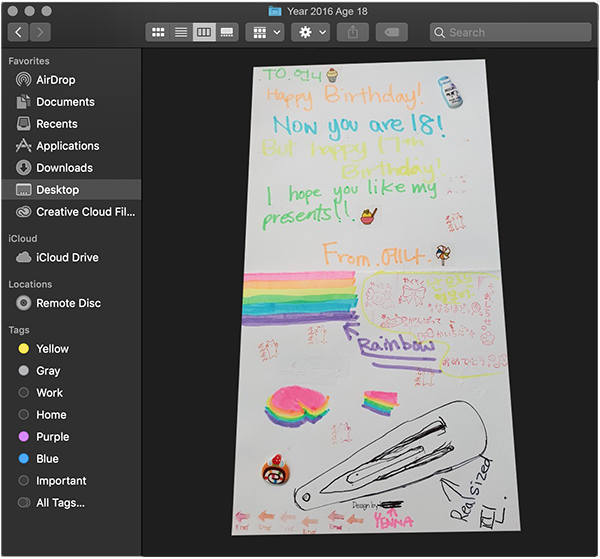 Year 2016 Age 18
Search
Favorites
AirDrop
Documents
Recents
Applications
Downloads
Desktop
Creative Cloud Fil...
iCloud
iCloud Drive
Locations
Remote Disc
Tags
Yellow
Gray
Work
Home
Purple
Blue
Important
All Tags...
TO.언니
Happy Birthday!
Now you are 18!
But happy 17th
Birthday!
I hope you like my
presents!!
From.예나
Rainbow
Real sized
핀.
Design by
YENNA